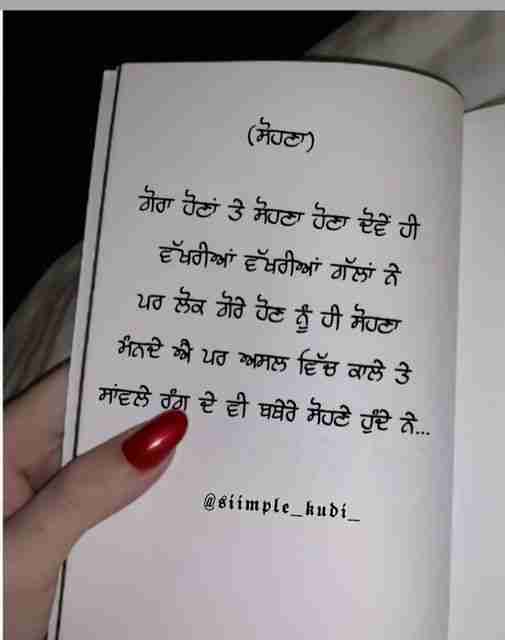 (ਸੋਹਣਾ)
ਗੋਰਾ ਹੋਣਾਂ ਤੇ ਸੋਹਣਾ ਹੋਣਾ ਦੋਵੇਂ ਹੀ
ਵੱਖਰੀਆਂ ਵੱਖਰੀਆਂ ਗੱਲਾਂ ਨੇ
ਪਰ ਲੋਕ ਗੋਰੇ ਹੋਣ ਨੂੰ ਹੀ ਸੋਹਣਾ
ਮੰਨਦੇ ਐ ਪਰ ਅਸਲ ਵਿੱਚ ਕਾਲੇ ਤੇ
ਸਾਂਵਲੇ ਰੰਗ ਦੇ ਵੀ ਬਥੇਰੇ ਸੋਹਣੇ ਹੁੰਦੇ ਨੇ...
@siimple_kudi_